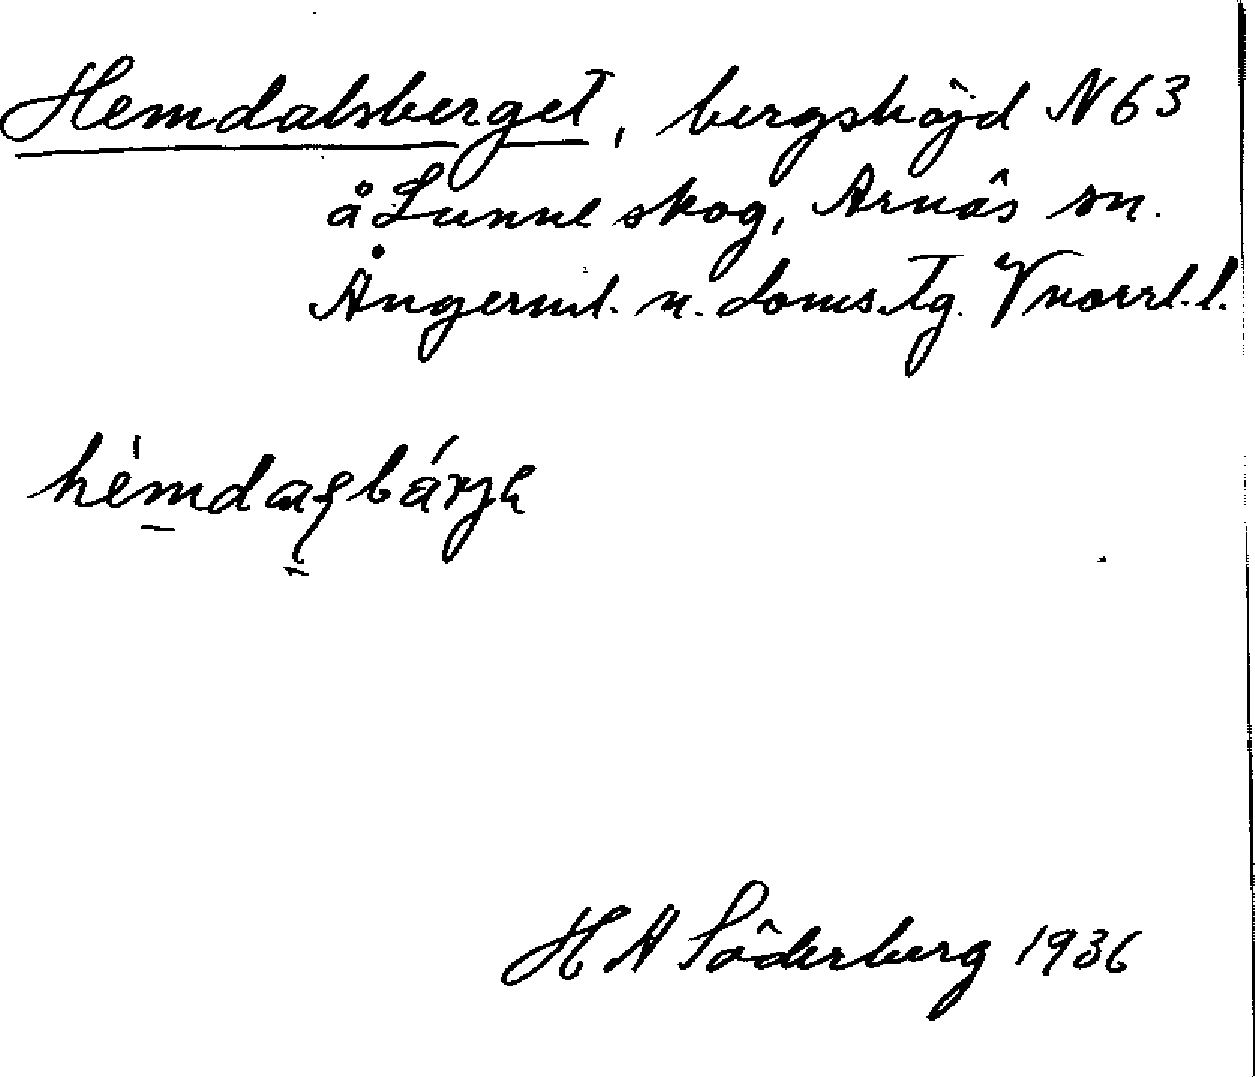 Hemdalsberget, bergshöjd N63
å Lunne skog, Arnäs sn.
Ångerml. n. doms. tg. Vnorrl. l.
H A Söderberg 1936